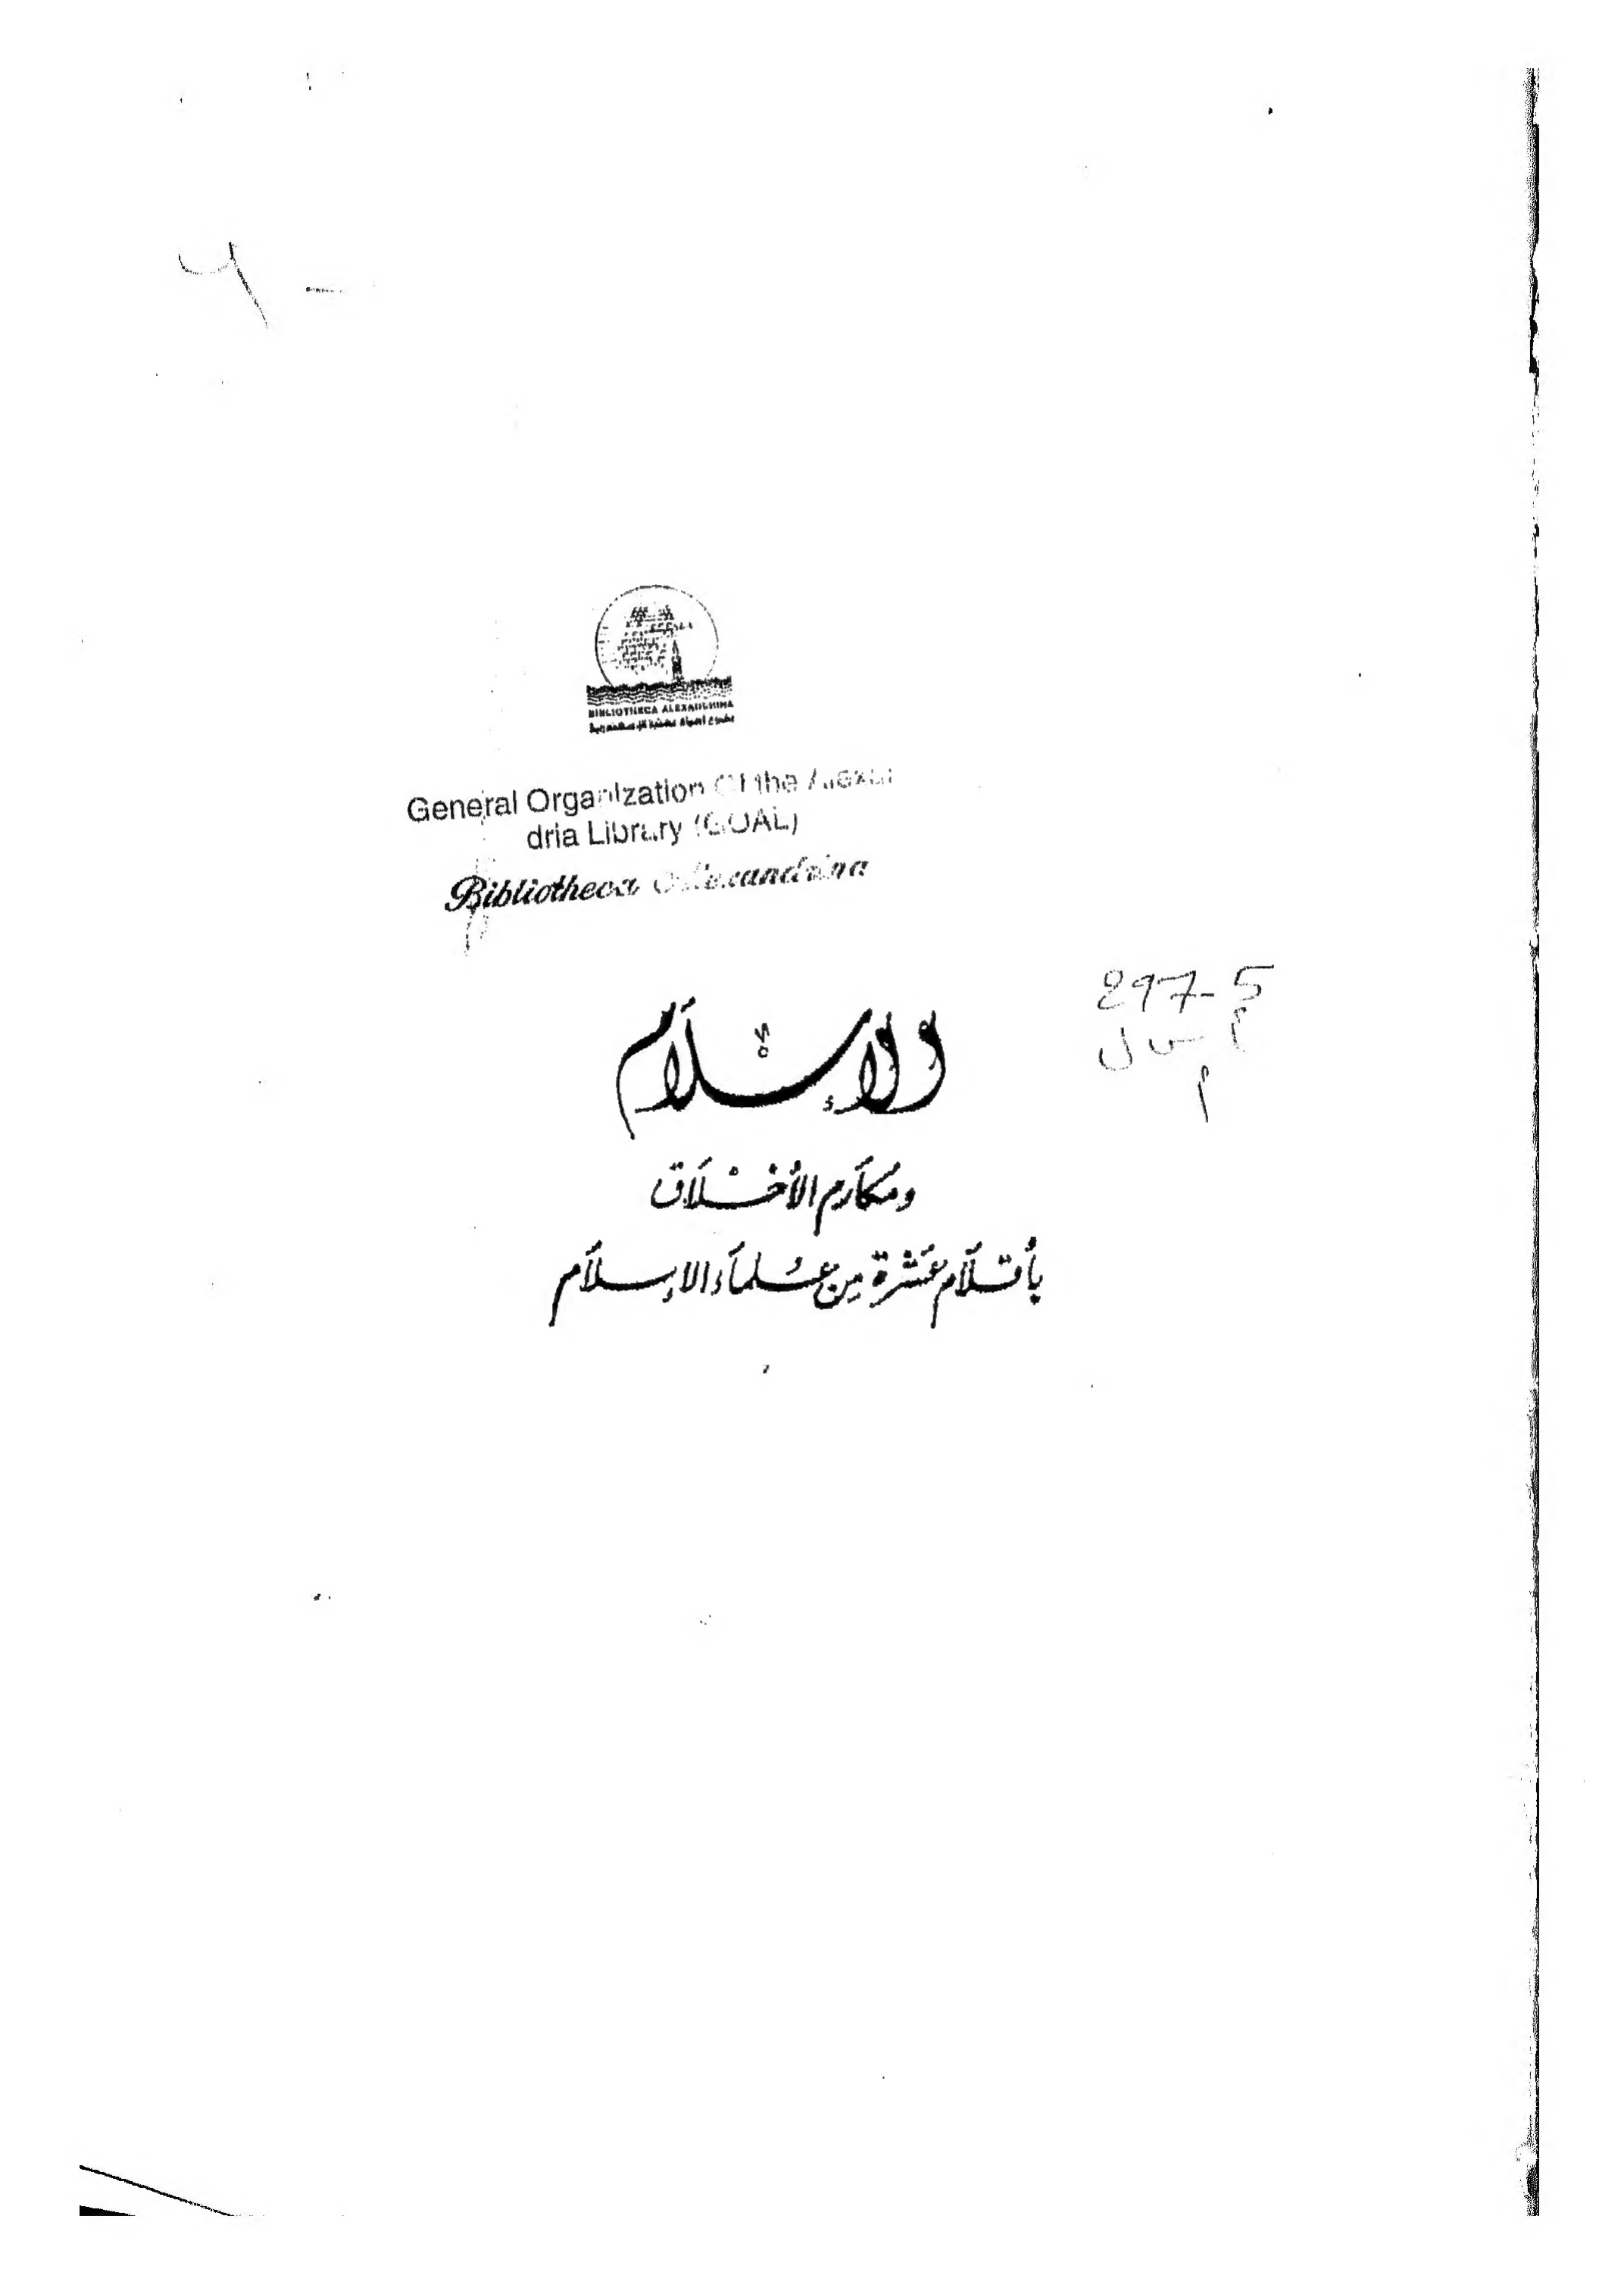 BIBLIOTHECA ALEXANDRINA
General Organization Of the Alexan
dria Library (GOAL)
Bibliotheca Alexandrina
297.5
الإسلام
ومكارم الأخلاق
بأقلام عشرة من علماء الإسلام